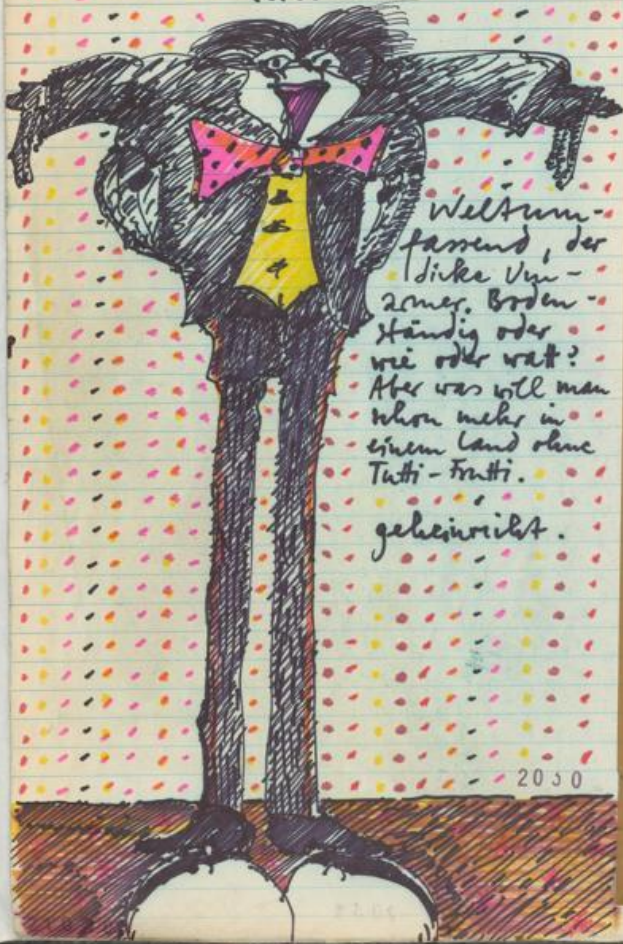 Weltum-
fassend, der
dicke Um-
armer. Boden-
ständig oder
wie oder watt?
Aber was will man
schon mehr in
einem Land ohne
Tutti-Frutti.
geheinricht.
2030